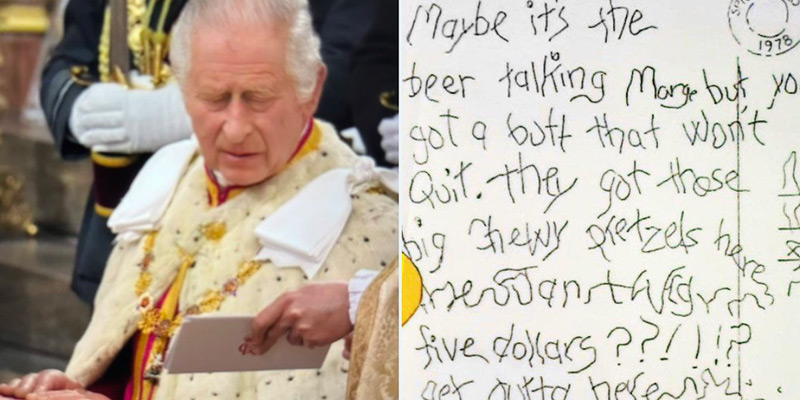 1978
Maybe it's the
beer talking Marge but yo
got a butt that won't
Quit. they got those
big chewy pretzels here
five dollars??!!!?
get outta here